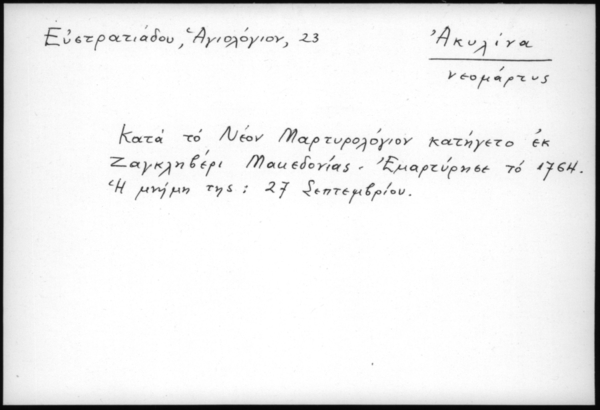 Εὐστρατιάδου, Ἁγιολόγιον, 23
Ἀκυλίνα
νεομάρτυς
Κατά τό Νέον Μαρτυρολόγιον κατήγετο ἐκ
Ζαγκλιβέρι Μακεδονίας. Ἐμαρτύρησε τό 1764.
Ἡ μνήμη της: 27 Σεπτεμβρίου.